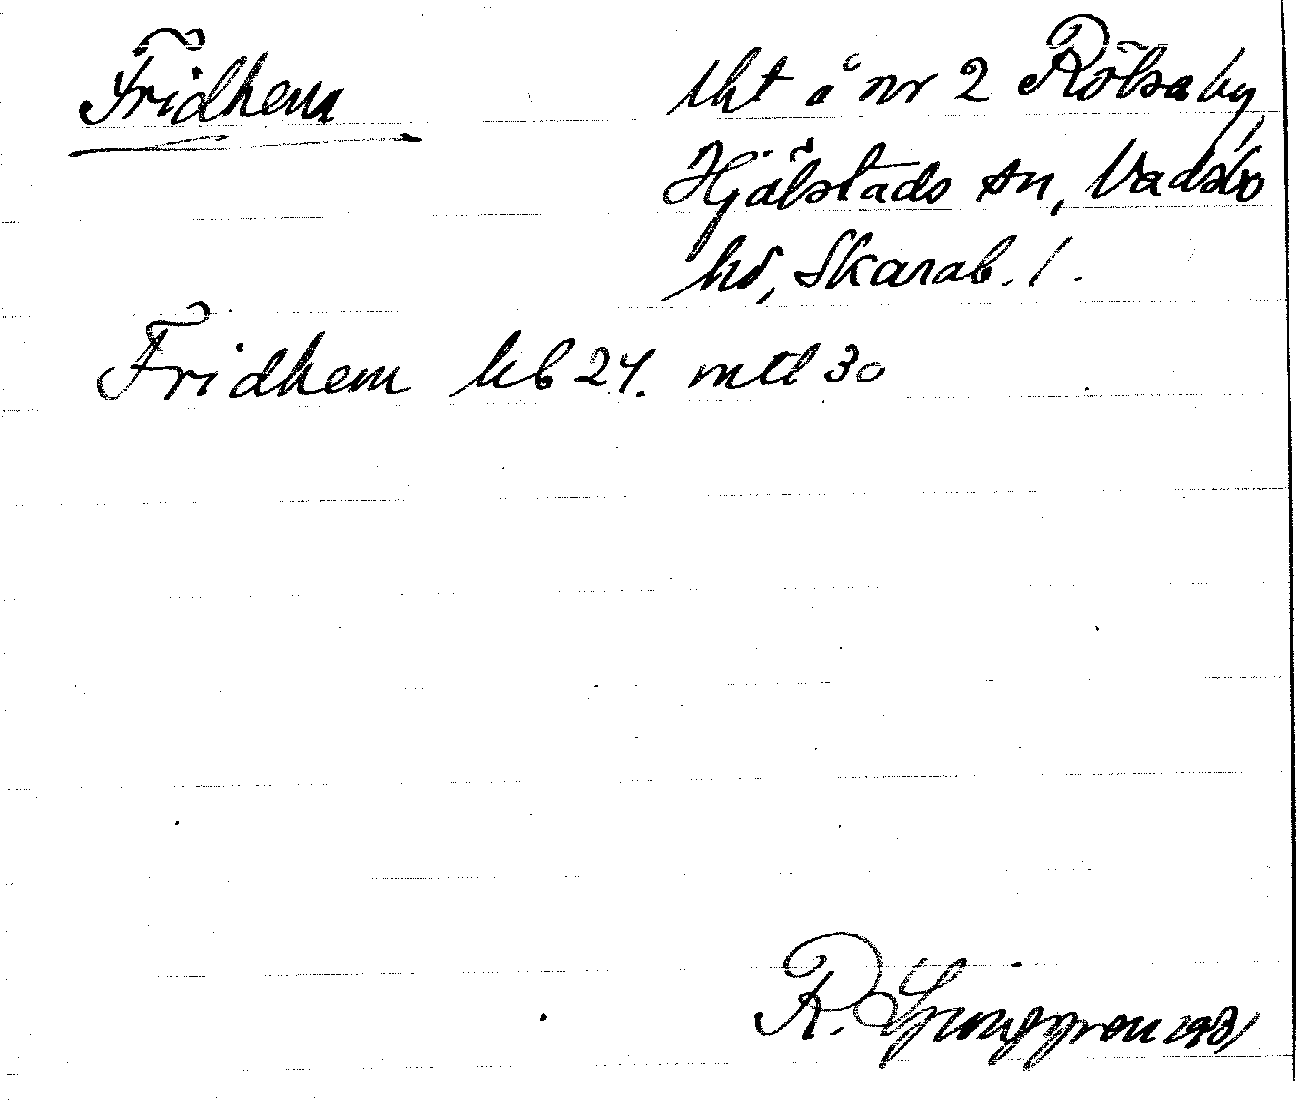 Fridhem
lht å nr 2 Rölsaby,
Hjälstads sn, Vadsbo
hd, Skarab. l.
Fridhem kb 24. mtl 30
R. Ljunggren 1931